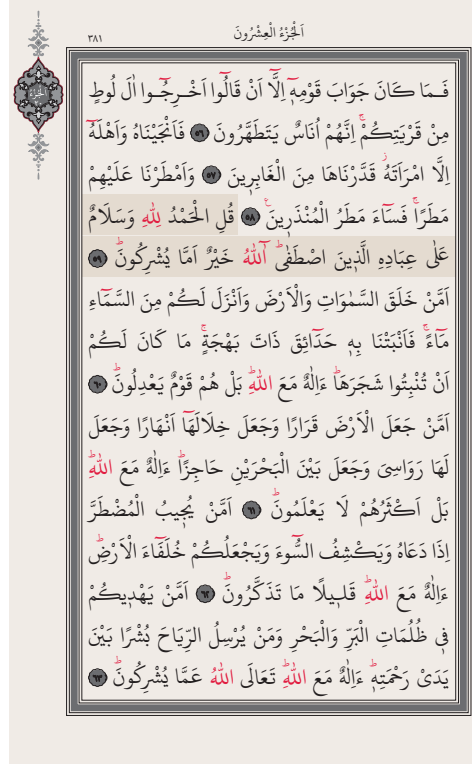 اَلْجُزْءُ الْعِشْرُونَ
٣٨١
فَمَا كَانَ جَوَابَ قَوْمِهٖٓ اِلَّٓا اَنْ قَالُٓوا اَخْرِجُٓوا اٰلَ لُوطٍ
مِنْ قَرْيَتِكُمْۚ اِنَّهُمْ اُنَاسٌ يَتَطَهَّرُونَ ﴿٥٦﴾ فَاَنْجَيْنَاهُ وَاَهْلَهُٓ
اِلَّا امْرَاَتَهُۘ قَدَّرْنَاهَا مِنَ الْغَابِر۪ينَ ﴿٥٧﴾ وَاَمْطَرْنَا عَلَيْهِمْ
مَطَرًاۚ فَسَٓاءَ مَطَرُ الْمُنْذَر۪ينَ۟ ﴿٥٨﴾ قُلِ الْحَمْدُ لِلّٰهِ وَسَلَامٌ
عَلٰى عِبَادِهِ الَّذ۪ينَ اصْطَفٰىۜ آٰللّٰهُ خَيْرٌ اَمَّا يُشْرِكُونَۜ ﴿٥٩﴾
اَمَّنْ خَلَقَ السَّمٰوَاتِ وَالْاَرْضَ وَاَنْزَلَ لَكُمْ مِنَ السَّمَٓاءِ
مَٓاءًۚ فَاَنْبَتْنَا بِه۪ حَدَٓائِقَ ذَاتَ بَهْجَةٍۚ مَا كَانَ لَكُمْ
اَنْ تُنْبِتُوا شَجَرَهَاۜ ءَاِلٰهٌ مَعَ اللّٰهِۜ بَلْ هُمْ قَوْمٌ يَعْدِلُونَۜ ﴿٦٠﴾
اَمَّنْ جَعَلَ الْاَرْضَ قَرَارًا وَجَعَلَ خِلَالَهَٓا اَنْهَارًا وَجَعَلَ
لَهَا رَوَاسِيَ وَجَعَلَ بَيْنَ الْبَحْرَيْنِ حَاجِزًاۜ ءَاِلٰهٌ مَعَ اللّٰهِۜ
بَلْ اَكْثَرُهُمْ لَا يَعْلَمُونَۜ ﴿٦١﴾ اَمَّنْ يُج۪يبُ الْمُضْطَرَّ
اِذَا دَعَاهُ وَيَكْشِفُ السُّٓوءَ وَيَجْعَلُكُمْ خُلَفَٓاءَ الْاَرْضِۜ
ءَاِلٰهٌ مَعَ اللّٰهِۜ قَل۪يلًا مَا تَذَكَّرُونَۜ ﴿٦٢﴾ اَمَّنْ يَهْد۪يكُمْ
ف۪ي ظُلُمَاتِ الْبَرِّ وَالْبَحْرِ وَمَنْ يُرْسِلُ الرِّيَاحَ بُشْرًا بَيْنَ
يَدَيْ رَحْمَتِه۪ۜ ءَاِلٰهٌ مَعَ اللّٰهِۜ تَعَالَى اللّٰهُ عَمَّا يُشْرِكُونَۜ ﴿٦٣﴾